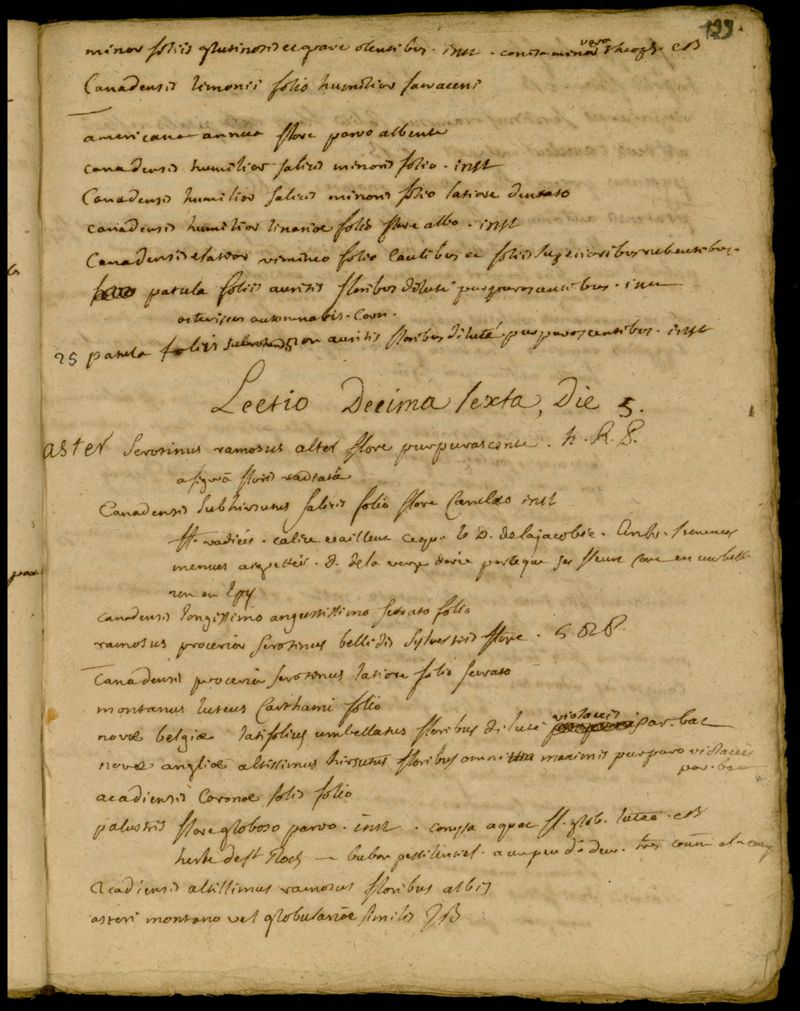 199.
minor foliis glutinosis et grave olentibus. inst. coniza minor vera Rheogh. CB
Canadensis limonii folio humilior Saraceni
americana annua flore parvo albente
canadensis humilior salicis minoris folio. inst
Canadensis humilior salicis minoris folio latiore densato
canadensis humilior linariæ foliis flore albo. inst
Canadensis elatior vimineo folio caulibus et foliis superioribus rubentibus.
patula foliis auritis floribus dilute purpurascentibus. inst
asteriscus autumnalis. Corn.
25 patula foliis subrotundis non auritis floribus dilute purpurascentibus. inst
Lectio Decima sexta, Die 5.
aster Serotinus ramosus alter flore purpurascente. h. R. P.
a figurâ floris radiatâ
Canadensis Subhirsutus salicis folio flore Cæruleo inst
ff. radiées. calice écailleux D. de la jacobée. Amb. semences
menues aigrettés. D. de la verge dorée parceque ses fleurs sont en
ou en Epy
canadensis longissimo angustissimo serrato folio
ramosus procerior serotinus bellidis sylvestris flore.
Canadensis procerior serotinus latiore folio serrato
montanus luteus Carthami folio
novæ belgiæ latifolius umbellatus floribus dilute violaceis par. bat
novæ angliæ altissimus hirsutus floribus omnium maximis purpuro violaceis
par. bat
acadiensis Coronæ solis folio
palustris flore globoso parvo. inst. conyza aquat. ff. glob. luteo. CB
herbe de St Roch — bubon pestilentiel. a un peu d'odeur. très comm. a la camp
Acadiensis altissimus ramosus floribus albis
asteri montano vel globulariæ similis JB